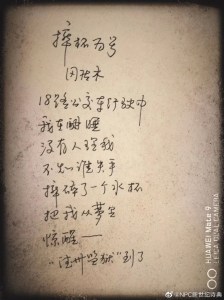 摔杯为号
18路公交车行驶中
我在瞌睡
没有人理我
不知谁失手
摔碎了一个水杯
把我从梦里
惊醒——
"漳州监狱"到了
HUAWEI Mate 9
LEICA DUAL CAMERA